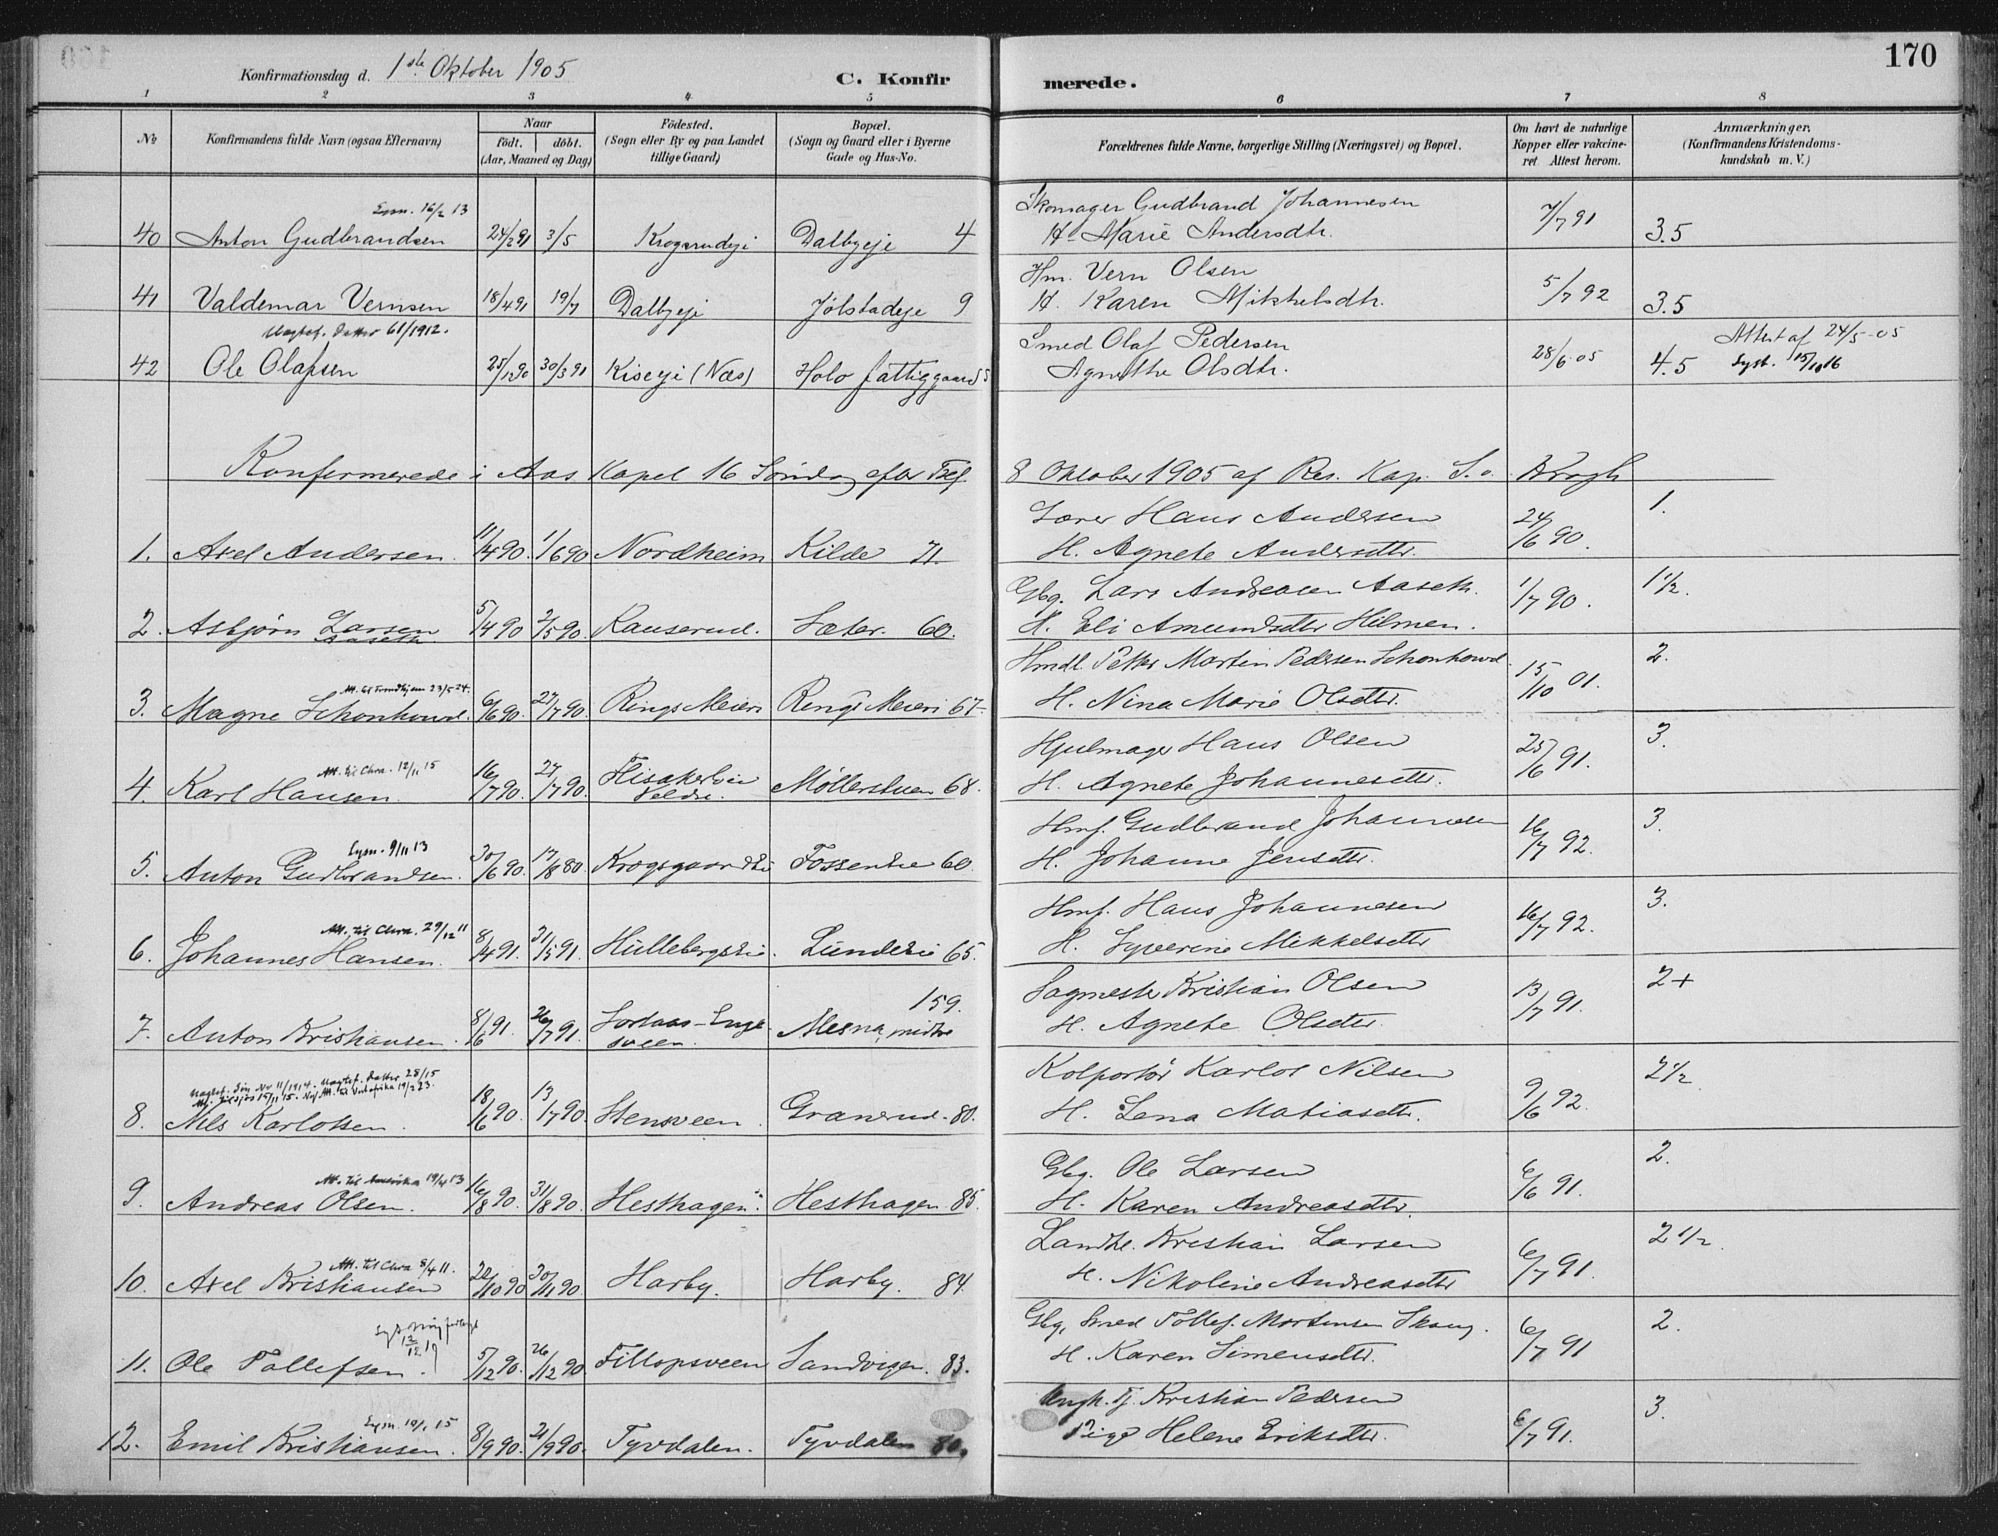 170
Konfirmationsdag d. 1ste Oktober 1905 C. Konfirmerede.
1 2 3 4 5 6 7 8
No Konfirmandens fulde Navn (ogsaa Efternavn) Naar født. døbt. (Aar, Maaned og Dag) Födested. (Sogn eller By og paa Landet tillige Gaard) Bopæl. (Sogn og Gaard eller i Byerne Gade og Hus-No. Forældrenes fulde Navne, borgerlige Stilling (Næringsvei) og Bopæl. Om havt de naturlige Kopper eller vakcineret Attest herom. Anmærkninger. (Konfirmandens Kristendomskundskab m. V.)
Lysn. 16/2 13 Skomager Gudbrand Johannesen
40 Anton Gudbrandsen 24/2 91 3/5 Krogsrudeje Dalbyeje 4 H. Marie Andersdtr. 7/7 91 3.5
Hm. Vern Olsen
41 Valdemar Vernsen 18/4 91 19/7 Dalbyeje Jølstadeje 9 H. Karen Mikkelsdtr. 5/7 92 3.5
Uegtef. Datter 61/1912. Smed Olaf Pedersen Attest af 24/5-05
42 Ole Olafsen 25/12 90 30/3 91 Kiseeje (Næs) Holo fattiggaard 5 Agnethe Olsdtr. 28/6 05 4.5 Lyst. 15/10 16
Konfirmerede i Aas Kapel 16 Søndag efter Tref. 8 Oktober 1905 af Res. Kap. S. v. Krogh
Lærer Hans Andersen
1. Axel Andersen. 11/4 90. 1/6 90 Nordheim Kilde 71. H. Agnete Andersdtr. 24/6 90. 1.
Gbg. Lars Andreasen Aaseth.
2. Asbjørn Larsen Aaseth 5/4 90 2/5 90. Rauserud. Sæter. 60. H. Eli Amundsdtr Hilmen. 1/7 90. 1 1/2.
Att. til Trondhjem 23/5 24. Hmdl. Petter Martin Pedersen Schonhowd
3. Magne Schonhowd. 6/6 90. 27/7 90. Rings Meieri Rings Meieri 67. H. Nina Marie Olsdtr. 15/10 01. 2.
Att. til Chra. 12/11 15 Hjulmager Hans Olsen
4. Karl Hansen. 16/7 90. 27/7 90. Flisaker Veldre. Møllerstuen 68. H. Agnete Johannesdtr. 25/6 91. 3.
Lysn. 9/11 13 Hmf. Gudbrand Johannesen
5. Anton Gudbrandsen. 30/6 90. 17/8 80 Krogsgaard Fossen 60. H. Johanne Jensdtr. 16/7 92. 3.
Att. til Chra. 29/12 11 Hmf. Hans Johannesen
6. Johannes Hansen. 8/4 91. 31/5 91. Hullebergseie. Lundeeie 65. H. Syverine Mikkelsdtr 16/7 92. 3.
159. Sagmester Kristian Olsen
7. Anton Kristiansen. 8/6 91. 26/7 91. Sorlaas-Engesveen. Mesna, midtre H. Agnete Olsdtr. 13/7 91. 2+
Uegtef. Søn No 11/1914. Uegtef. Datter 28/15 Kolportør Karlot Nilsen
8. Nils Karlotsen. 18/6 90. 13/7 90. Stensveen. Granerud. 80. H. Lena Matiasdtr. 9/6 92. 2 1/2.
Att. til Amerika 19/4 13 Gbg. Ole Larsen
9. Andreas Olsen. 16/8 90. 31/8 90. Hesthagen. Hesthagen 85. H. Karen Andreasdtr. 6/6 91. 2.
Att. til Chra 8/4 11. Landh. Kristian Larsen
10. Axel Kristiansen 22/10 90 30/11 90. Harby. Harby. 84. H. Nikoline Andreasdtr 6/7 91. 2 1/2.
Gbg, Smed Tollef. Mortensen Skaug.
11. Ole Tollefsen. 5/12 90. 26/12 90. Fillopsveen Sandvigen. 83. H. Karen Simensdtr. 6/7 91 2.
Lysn. 10/1 15 Ungk. Tj. Kristian Pedersen
12. Emil Kristiansen. 8/9 90. 21/9 90. Tyvdalen. Tyvdalen 80. Pige Helene Eriksdtr. 6/7 91. 3.